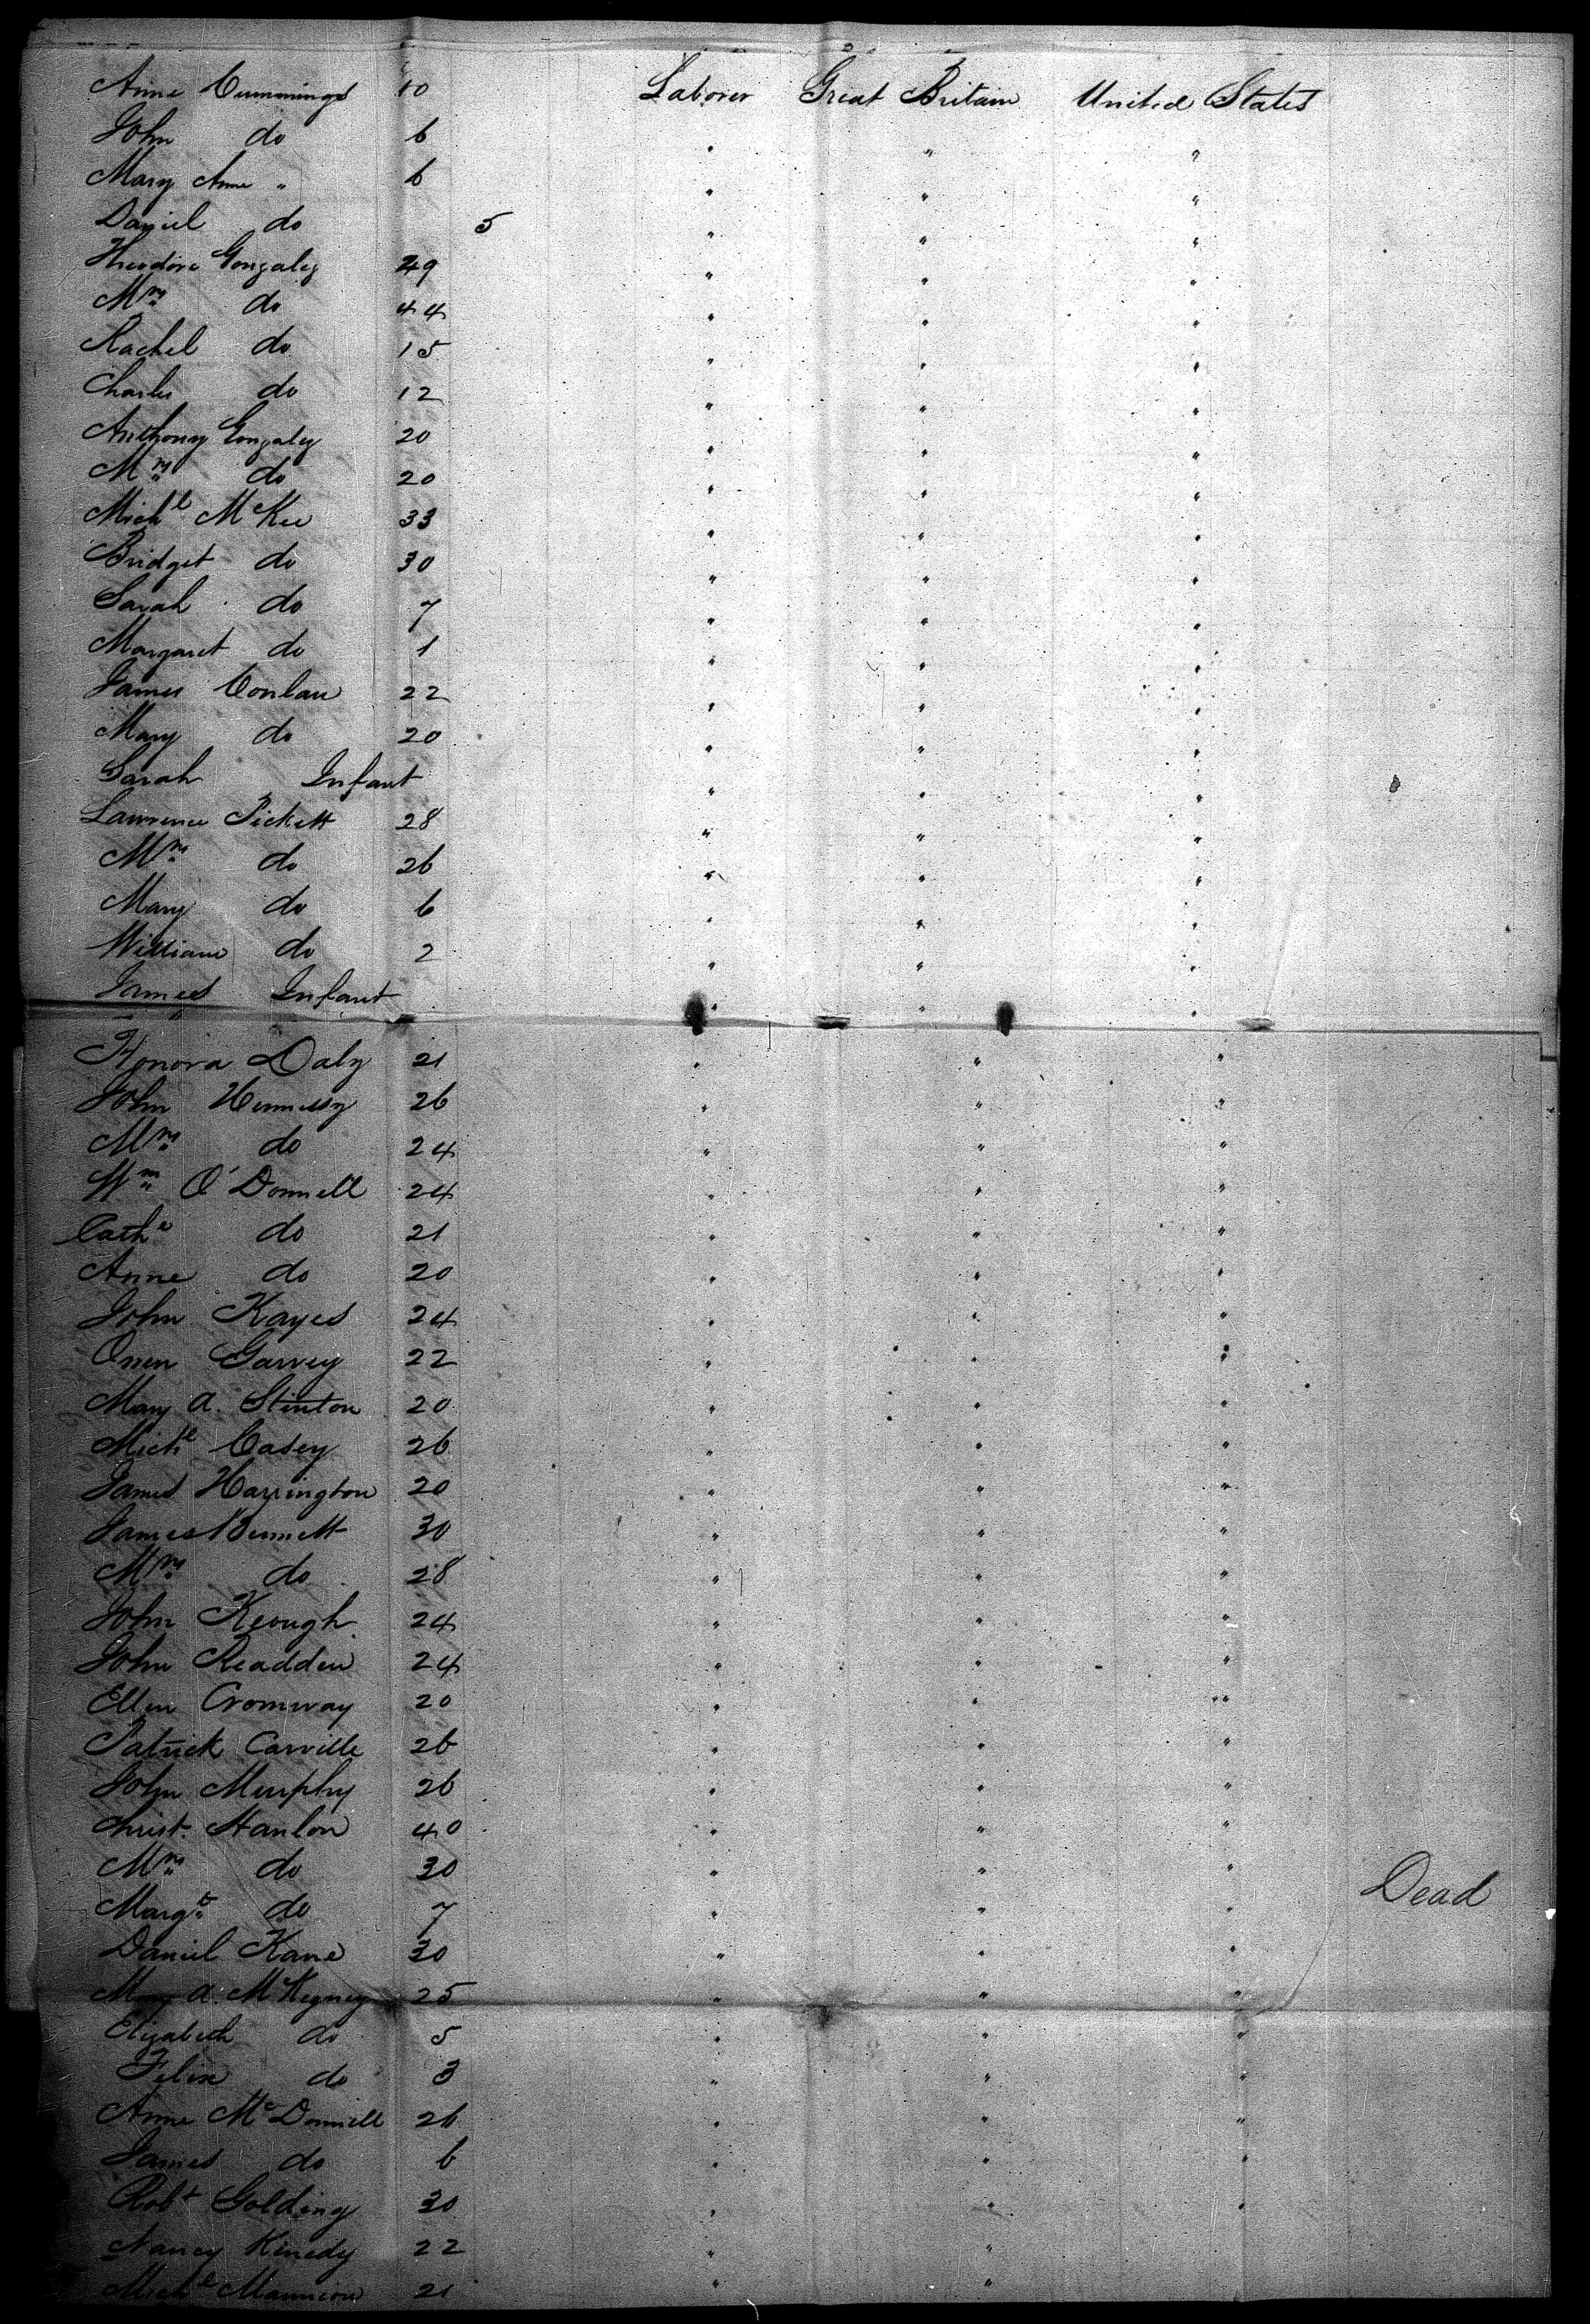 Anne Cummings 10 Laborer Great Britain United States
John do 6 " " "
Mary Anne " 6 " " "
Daniel do 5 " " "
Theodore Gonzalez 49 " " "
Mrs do 44 " " "
Rachel do 15 " " "
Charles do 12 " " "
Anthony Gonzalez 20 " " "
Mrs do 20 " " "
Michl McKee 33 " " "
Bridget do 30 " " "
Sarah do 7 " " "
Margaret do 1 " " "
James Conlan 22 " " "
Mary do 20 " " "
Sarah Infant " " "
Lawrence Pickett 28 " " "
Mrs do 26 " " "
Mary do 6 " " "
William do 2 " " "
James " Infant " " "
Honora Daly 21 " " "
John Hennessy 26 " " "
Mrs do 24 " " "
Wm O'Donnell 24 " " "
Cathe do 21 " " "
Anne do 20 " " "
John Kayes 24 " " "
Owen Garvey 22 " " "
Mary A. Stinton 20 " " "
Michl Casey 26 " " "
James Harrington 20 " " "
James Bennett 30 " " "
Mrs do 28 " " "
John Keough 24 " " "
John Readden 24 " " "
Ellen Cromway 20 " " "
Patrick Carville 26 " " "
John Murphy 26 " " "
Christ. Hanlon 40 " " "
Mrs do 30 " " "
Margt do 7 " " " Dead
Daniel Kane 30 " " "
Mary A. McKeyney 25 " " "
Elizabeth do 5 " " "
Felix do 3 " " "
Anne McDonnell 26 " " "
James do 6 " " "
Robt Golding 30 " " "
Nancy Kinedy 22 " "
Michl Mannion 21 " "